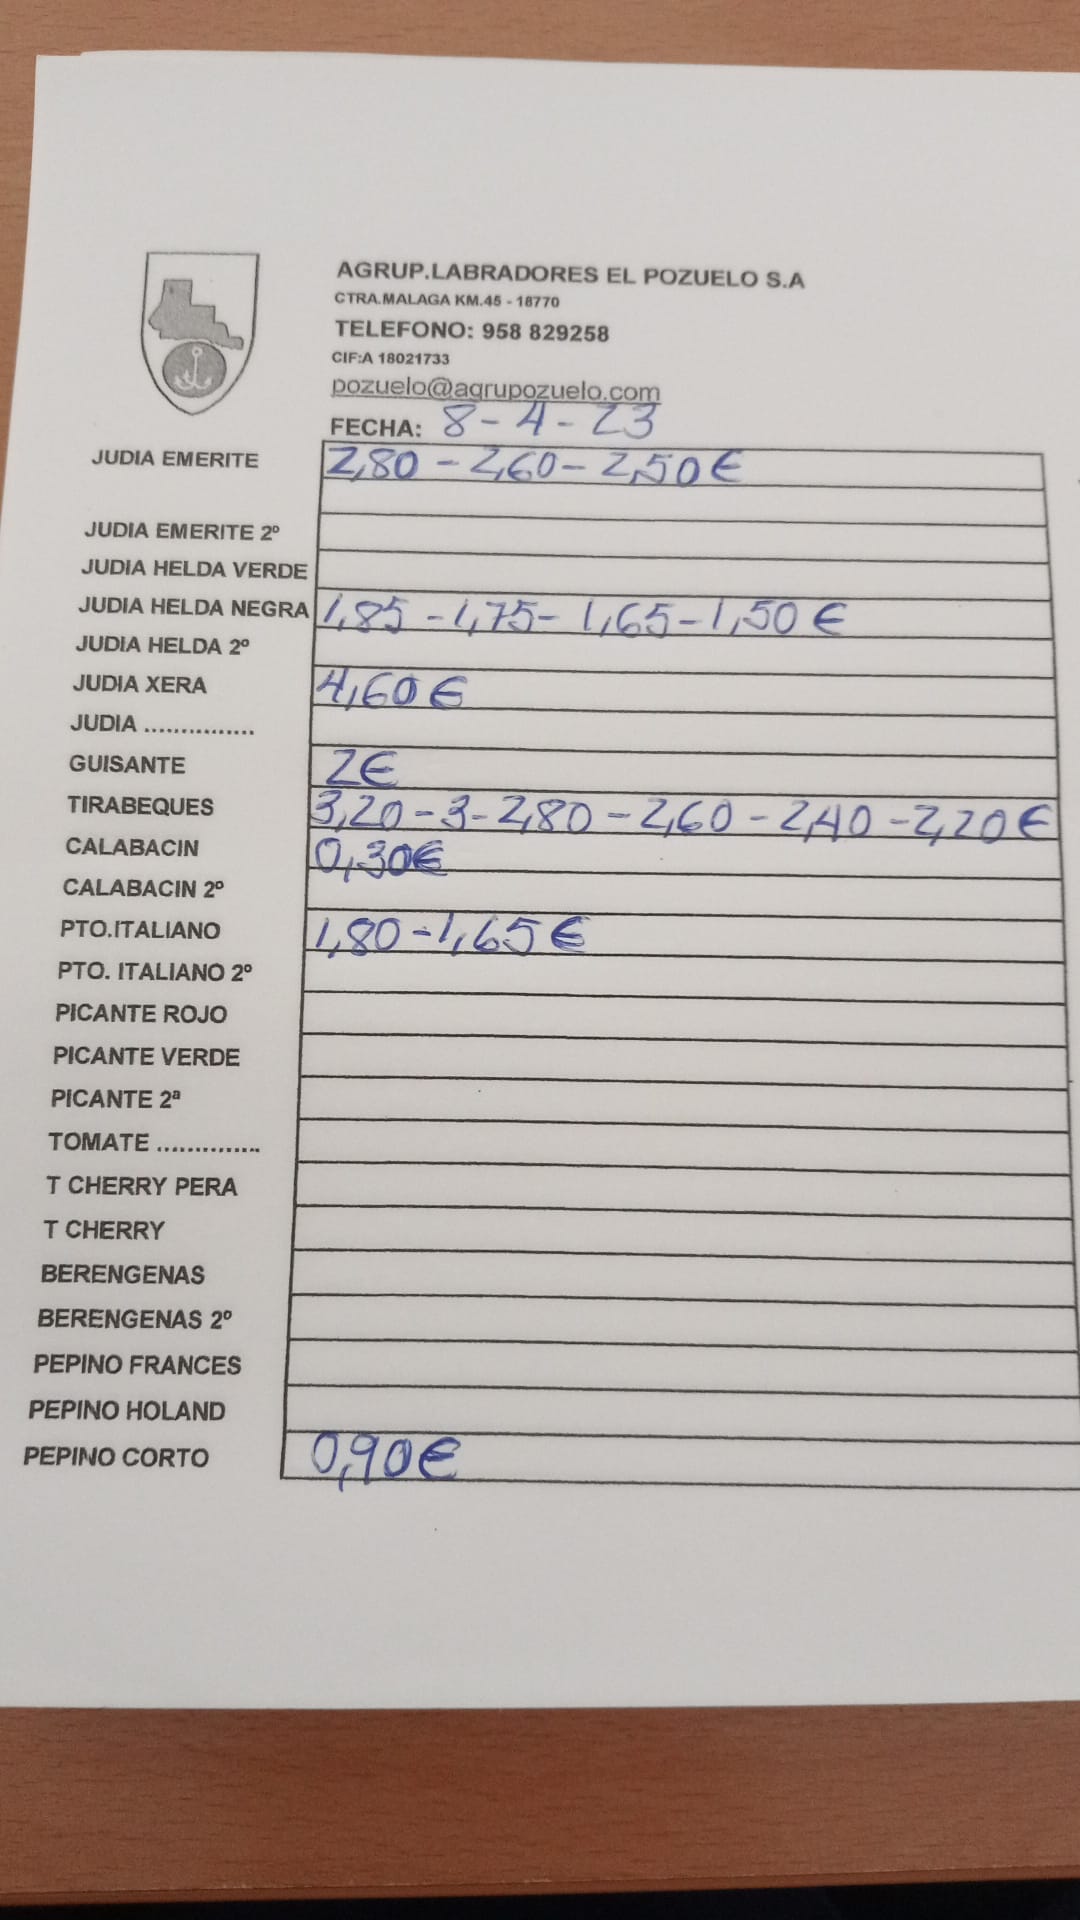 AGRUP.LABRADORES EL POZUELO S.A
CTRA.MALAGA KM.45 - 18770
TELEFONO: 958 829258
CIF:A 18021733
pozuelo@agrupozuelo.com
FECHA: 8-4-23
JUDIA EMERITE 2,80 - 2,60 - 2,50 €
JUDIA EMERITE 2º
JUDIA HELDA VERDE
JUDIA HELDA NEGRA 1,85 - 1,75 - 1,65 - 1,50 €
JUDIA HELDA 2º
JUDIA XERA 4,60 €
JUDIA ...............
GUISANTE 2€
TIRABEQUES 3,20 - 3 - 2,80 - 2,60 - 2,40 - 2,20 €
CALABACIN 0,30€
CALABACIN 2º
PTO.ITALIANO 1,80 - 1,65 €
PTO. ITALIANO 2º
PICANTE ROJO
PICANTE VERDE
PICANTE 2ª
TOMATE ..............
T CHERRY PERA
T CHERRY
BERENGENAS
BERENGENAS 2º
PEPINO FRANCES
PEPINO HOLAND
PEPINO CORTO 0,90€